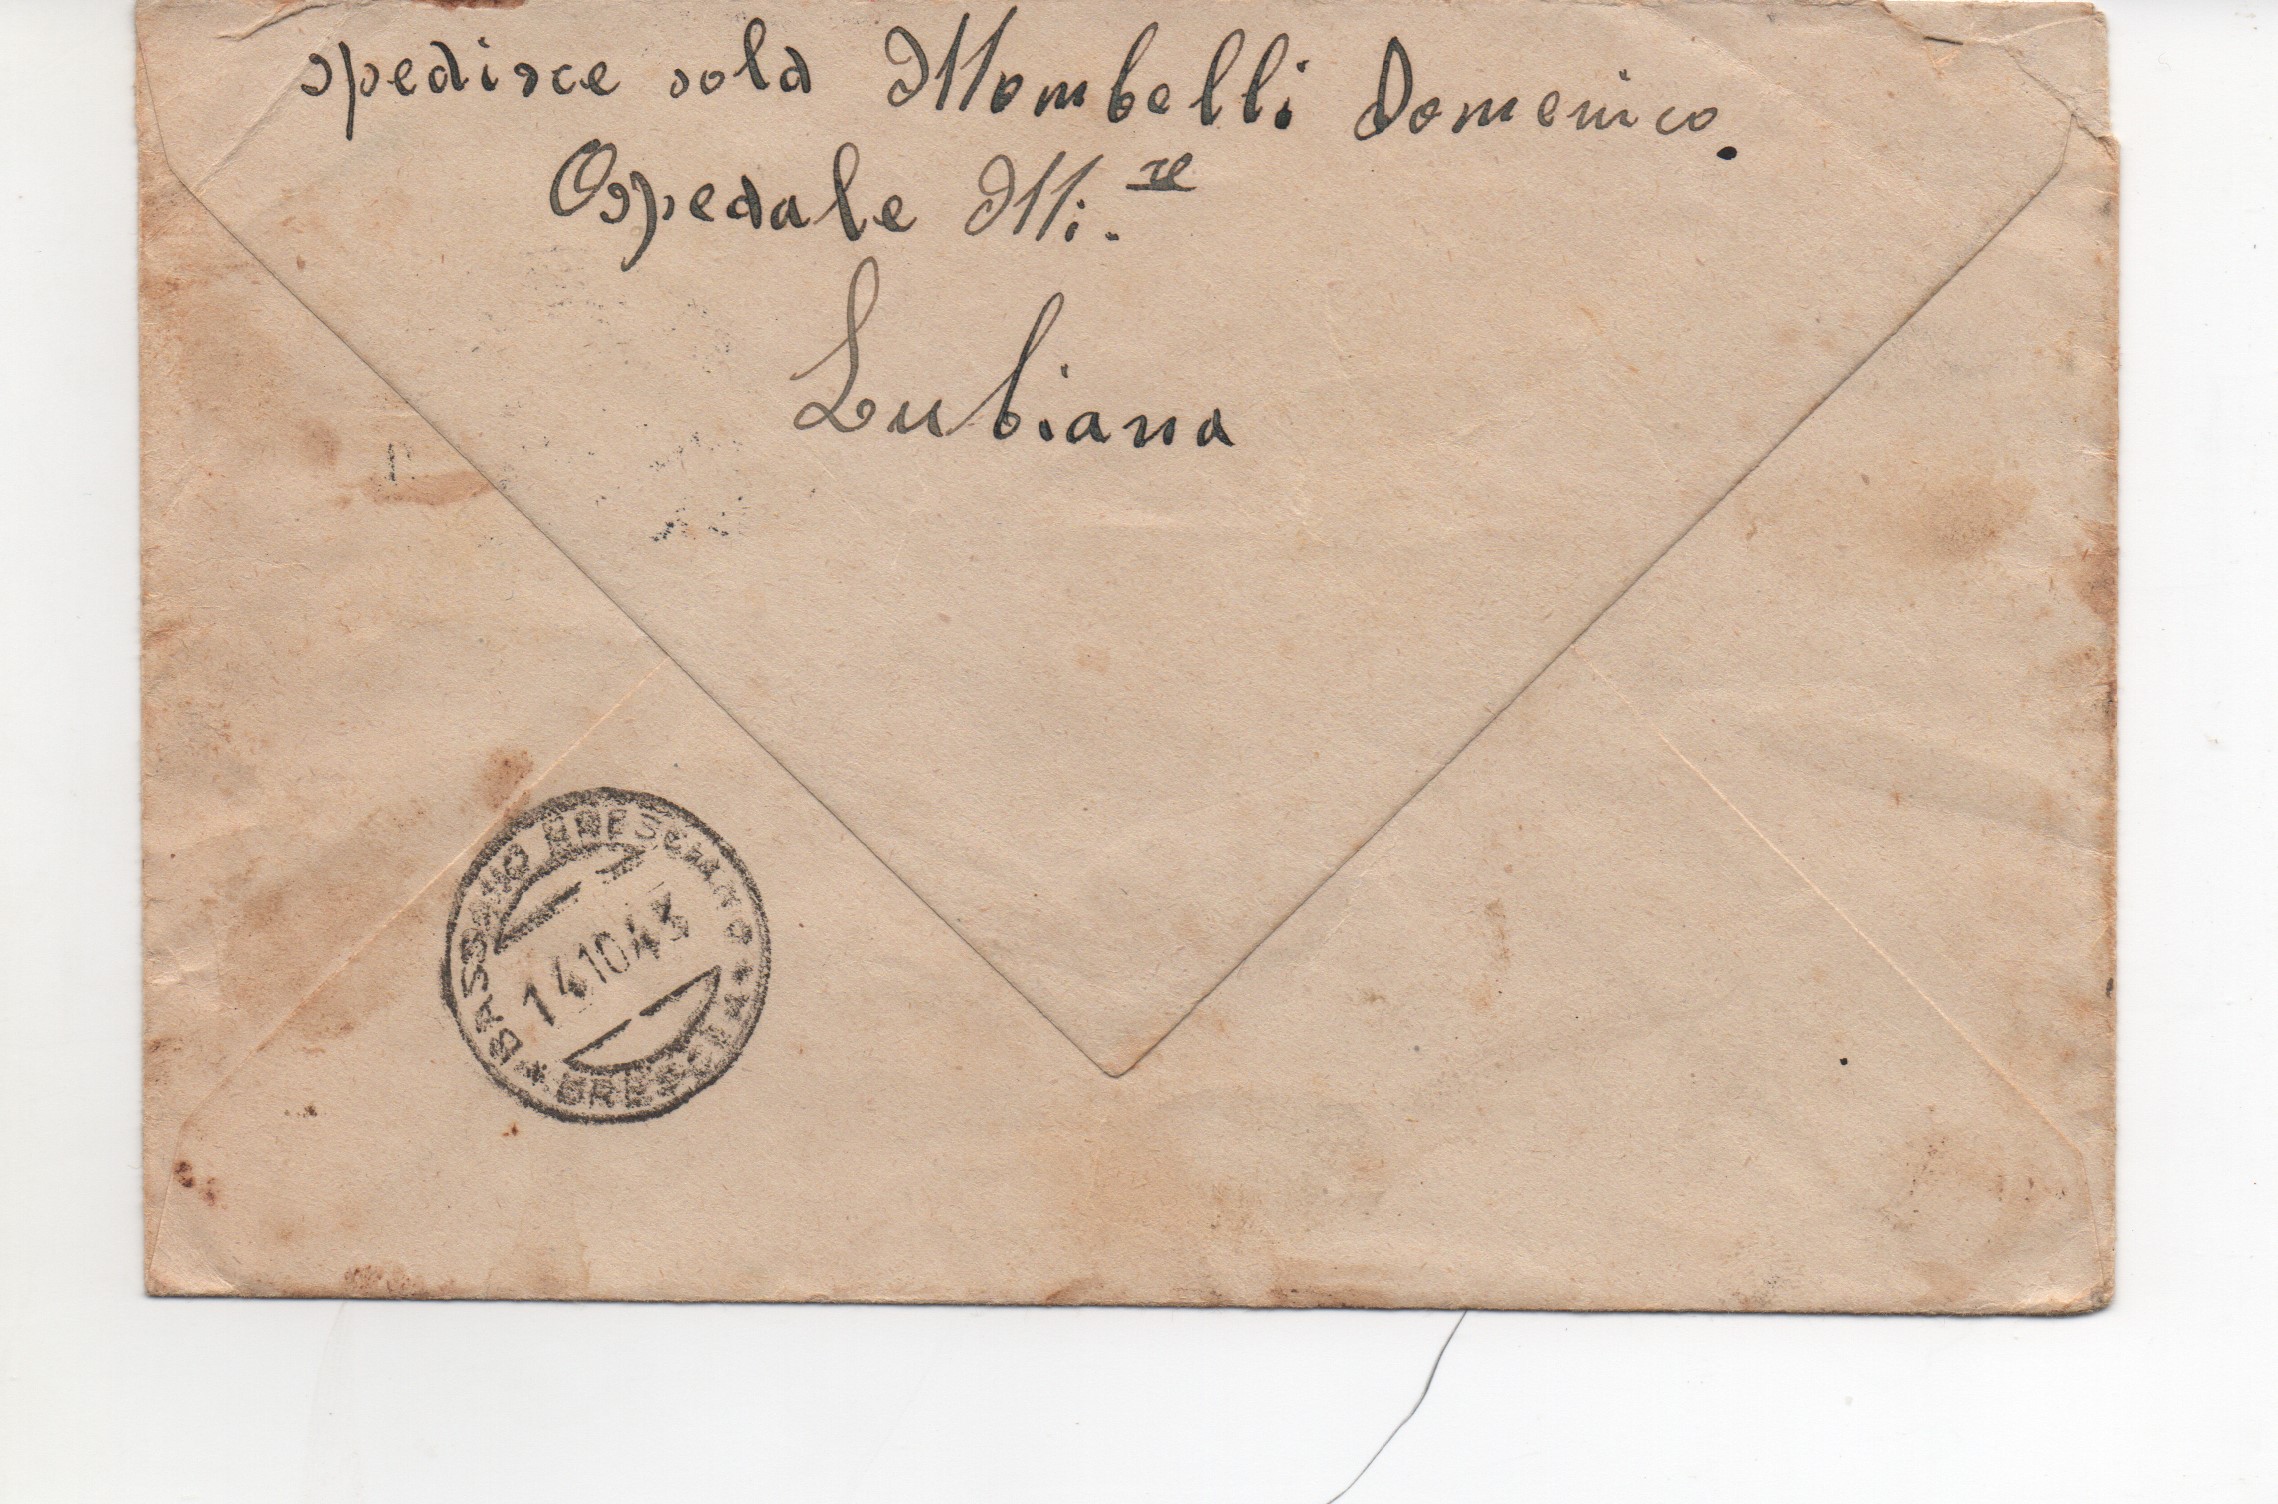 spedisce sold Mombelli Domenico.
Ospedale Mi.re
Lubiana
BASSANO BRESCIANO
14.10.43
* BRESCIA *